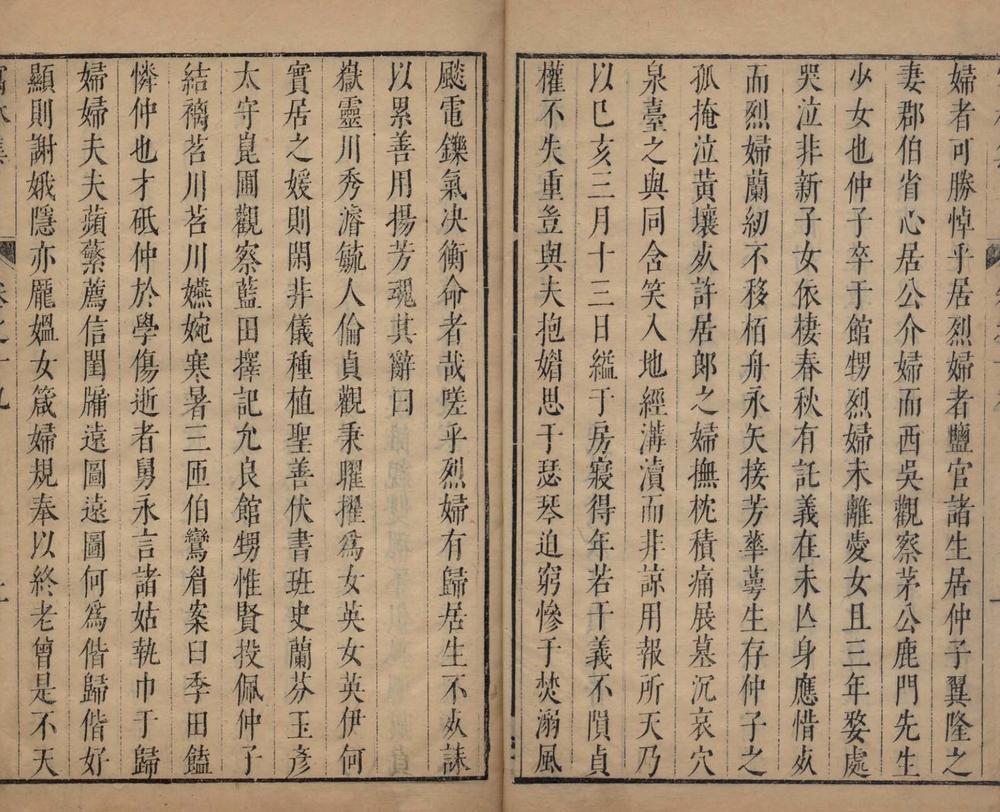 婦者可勝悼乎居烈婦者鹽官諸生居仲子翼隆之
妻郡伯省心居公介婦而西吳觀察茅公鹿門先生
少女也仲子卒于館甥烈婦未離愛女且三年婺處
哭泣非新子女依棲春秋有託義在未亾身應惜㱔
而烈婦蘭紉不移栢舟永矢接芳華蕚生存仲子之
孤掩泣黃壤㱔許居郎之婦撫枕積痛展墓沉哀穴
泉臺之與同含笑入地經溝瀆而非諒用報所天乃
以巳亥三月十三日縊于房寢得年若干義不隕貞
權不失重豈與夫抱媢思于瑟琴迫窮慘于焚溺風
颷電鑠氣决衡命者哉嗟乎烈婦有歸居生不㱔誄
以累善用揚芳魂其辭曰
嶽靈川秀濬毓人倫貞觀秉曜擢爲女英女英伊何
實居之媛則閑非儀種植聖善伏書班史蘭芬玉彥
太守崑圃觀察藍田擇記允良館甥惟賢投佩仲子
結褵苕川苕川嬿婉寒暑三匝伯鸞眉案曰季田饁
憐仲也才砥仲於學傷逝者舅永言諸姑執巾于歸
婦婦夫夫蘋蘩薦信閨牖遠圖遠圖何爲偕歸偕好
顯則謝娥隱亦龐媼女箴婦規奉以終老曾是不天
卷之十九